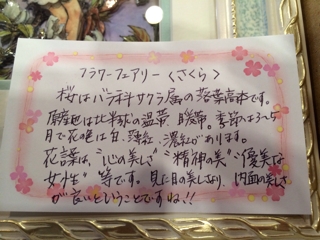 フラワーフェアリー〈さくら〉
桜はバラ科サクラ属の落葉高木です。
原産地は北半球の温帯、暖帯。季節は3〜5
月で花色は白、淡紅、濃紅があります。
花言葉は、"心の美しさ" "精神の美" "優美な
女性" 等です。見た目の美しさより、内面の美しさ
が良いということですね!!